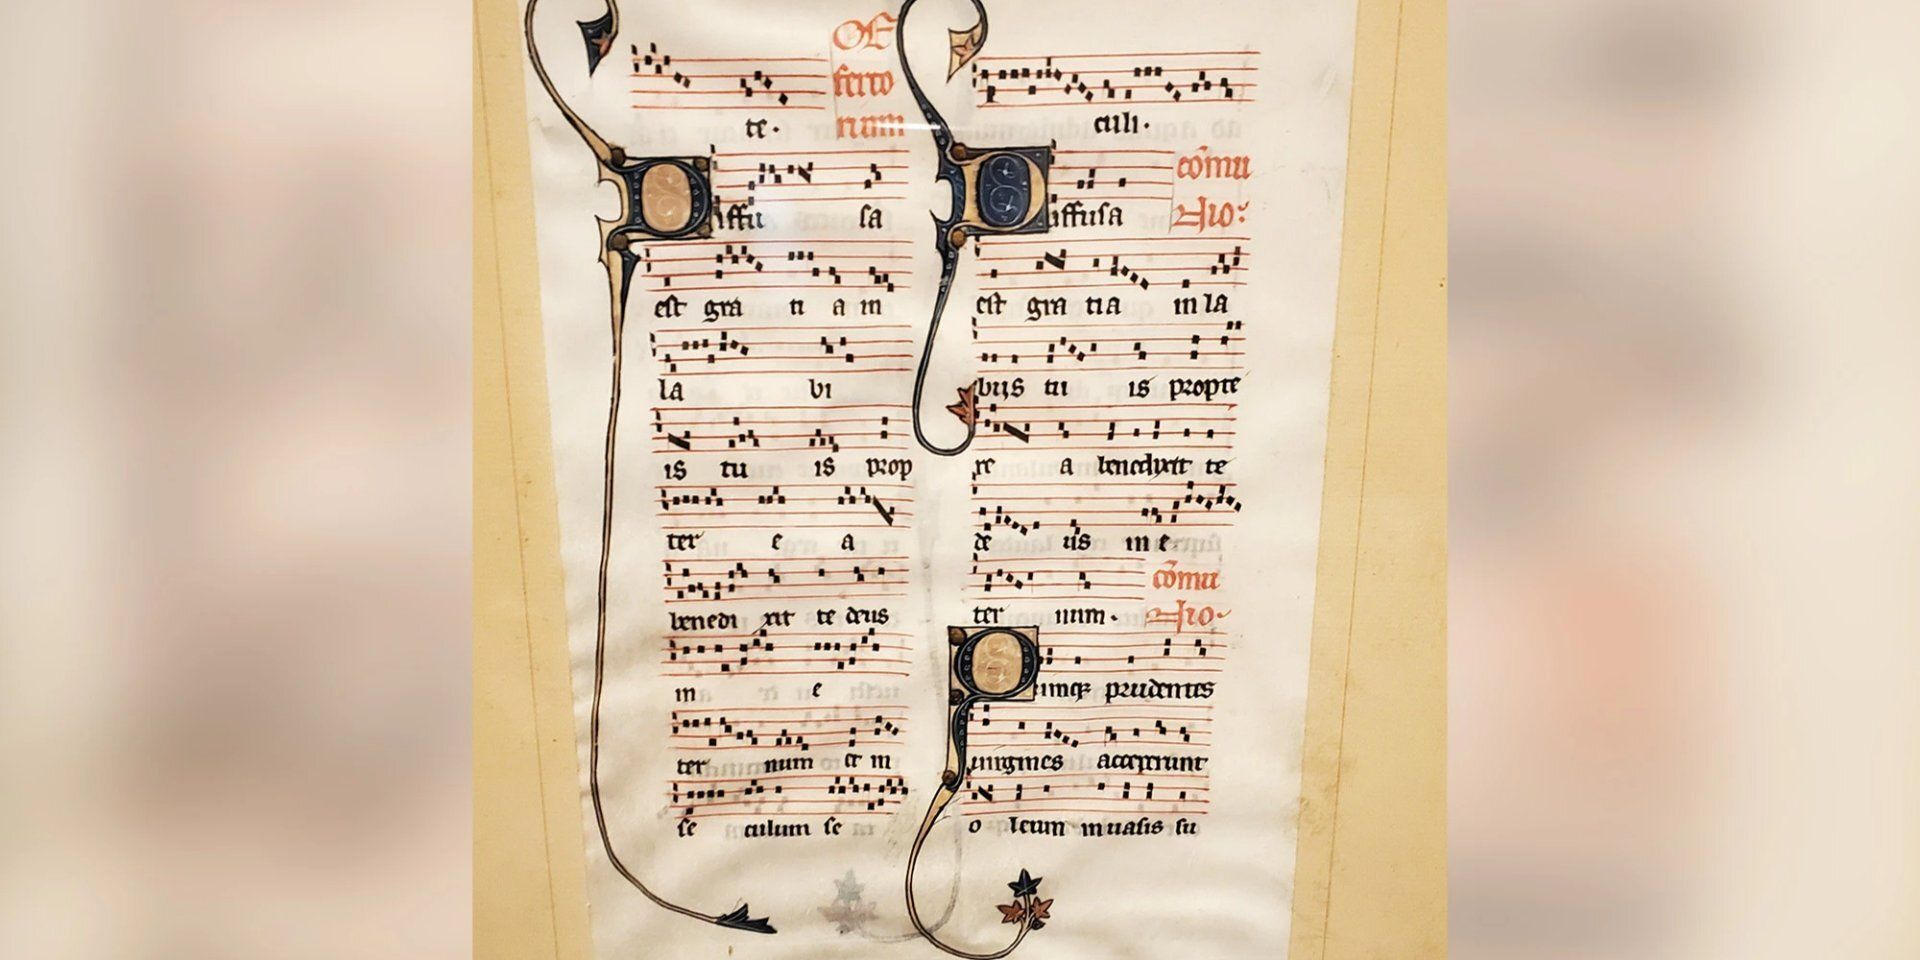 te. OF
ferto
rium
Diffu sa
est gra ti a in
la bi
is tu is prop
ter e a
benedi xit te deus
in e
ter num et in
se culum se
culi.
Diffusa cõmu
nio:
est gra tia in la
bijs tu is propte
re a benedixit te
de us in e
ter num. cõmu
nio.
Quinqz prudentes
uirgines acceperunt
o leum in uasis su